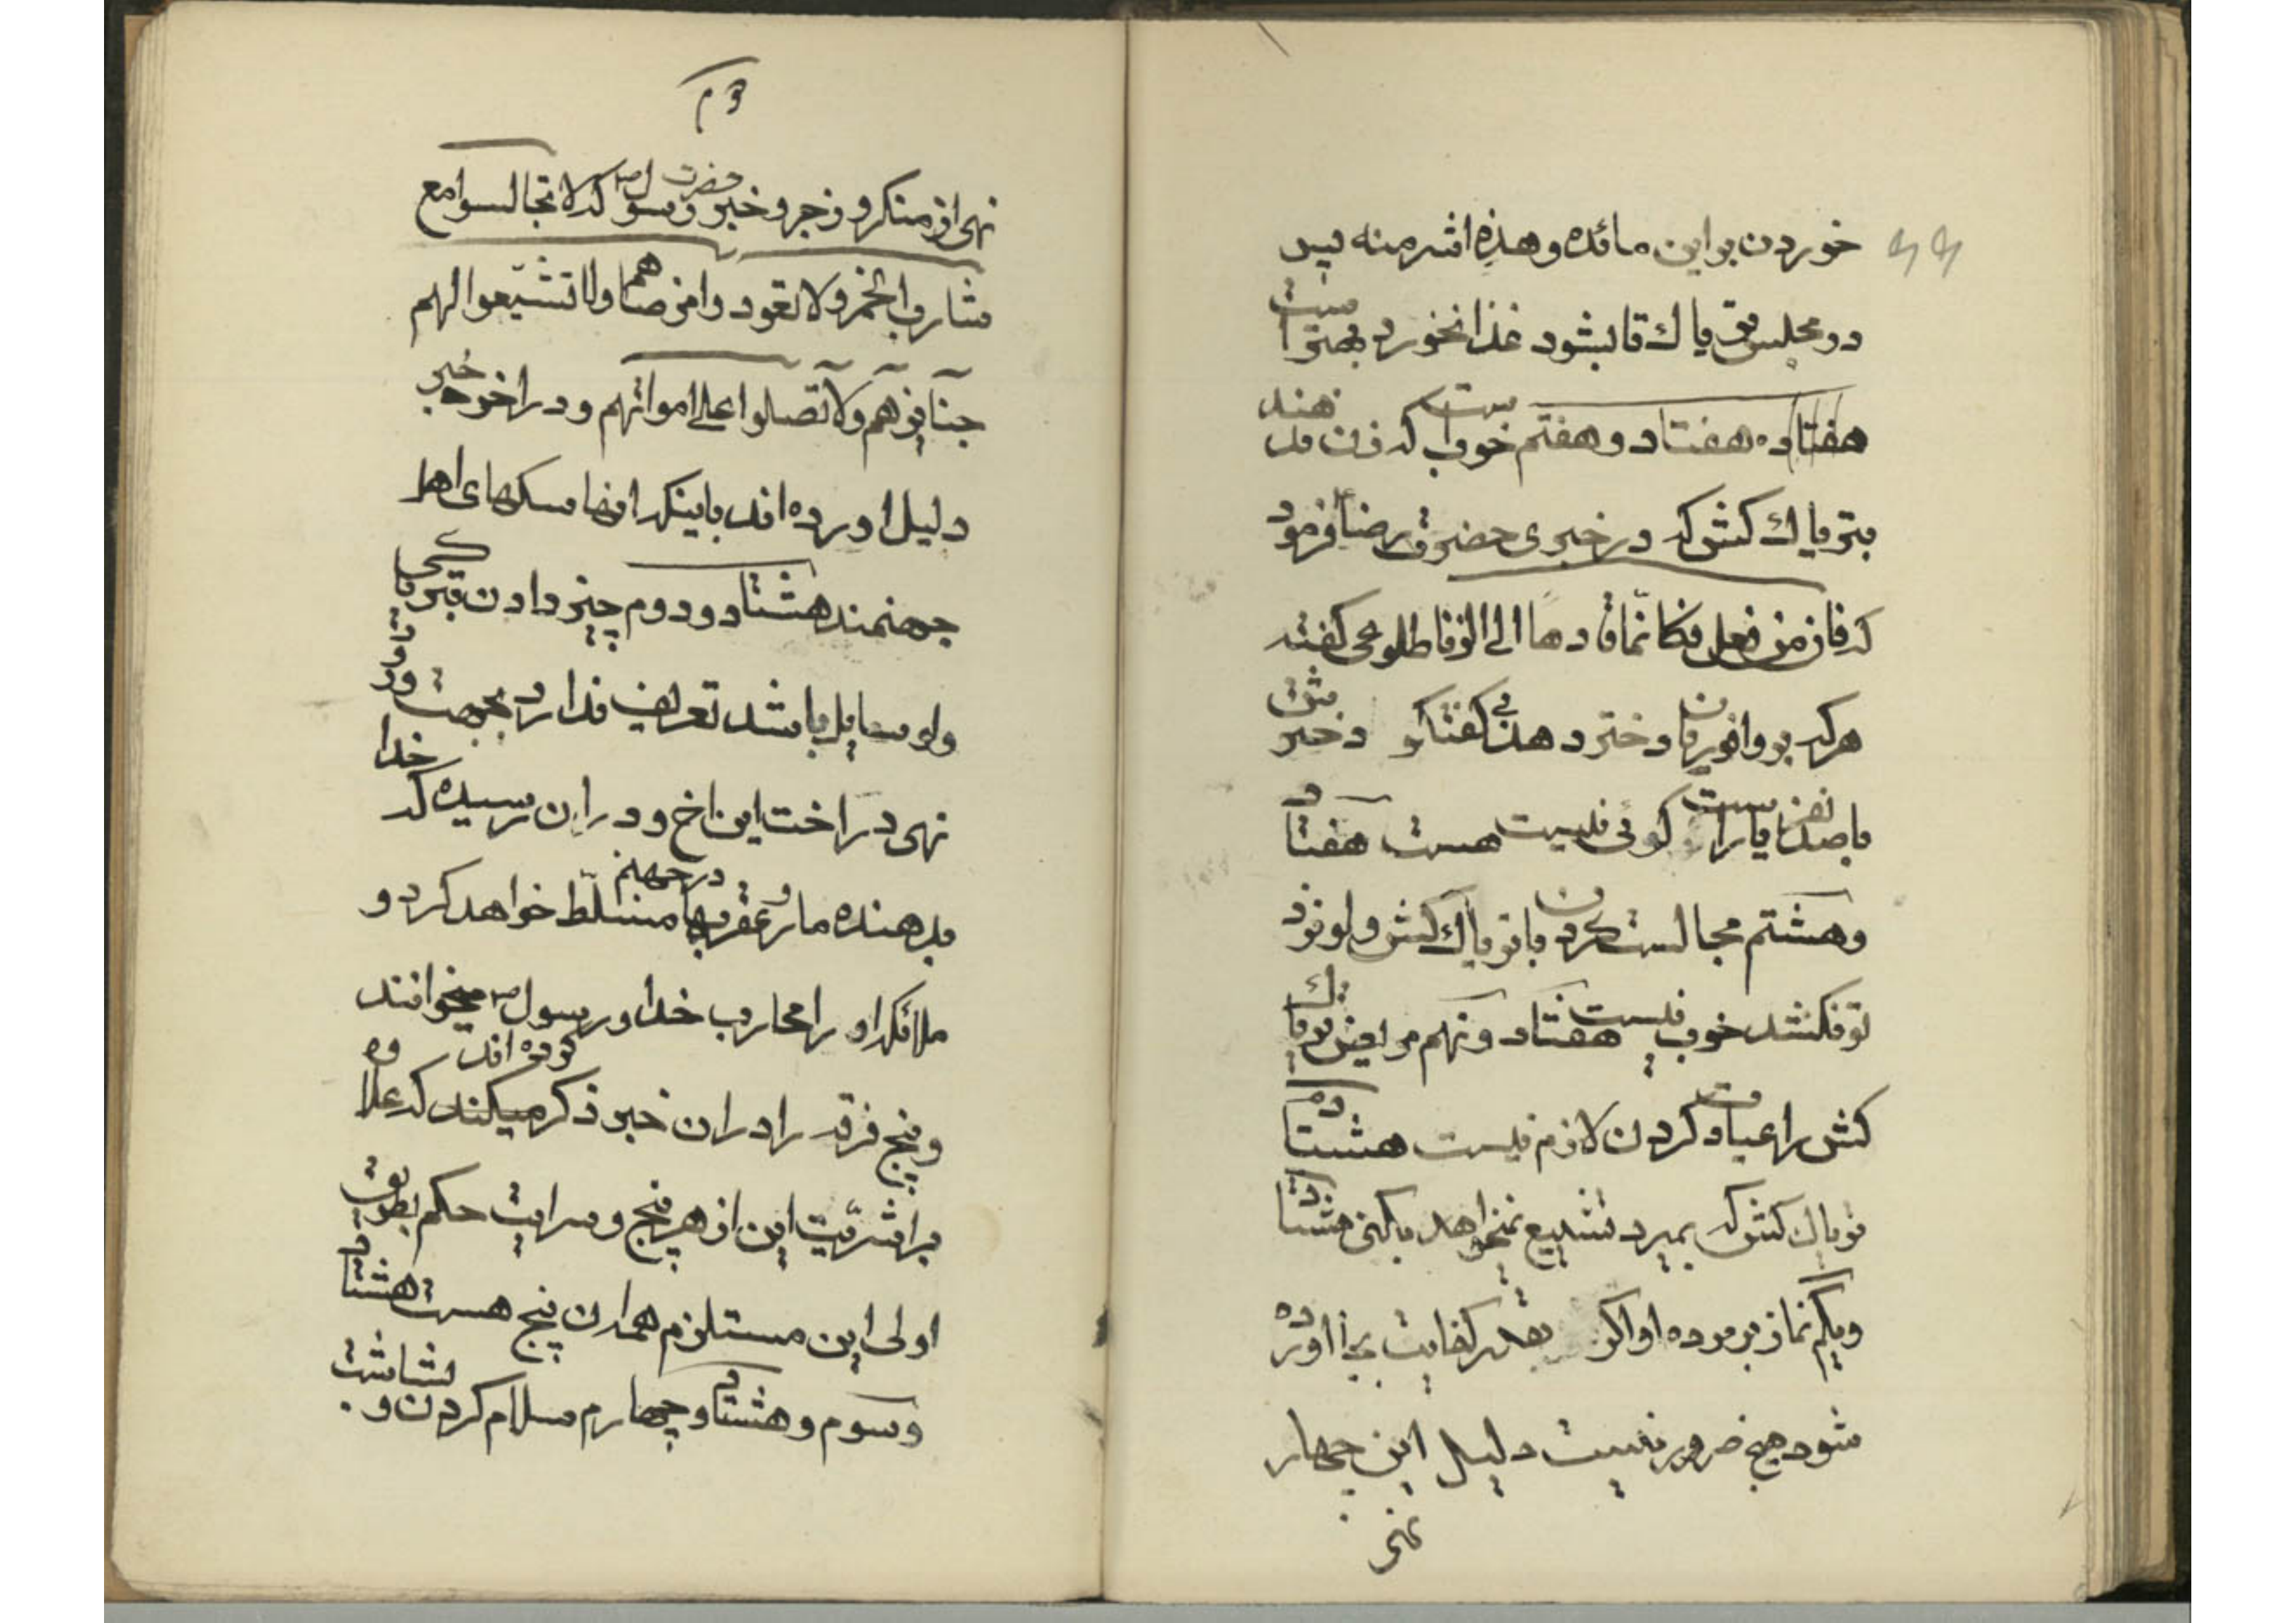 خوردن بر این مائده و هذه اشر منه پس
در مجلس تریاک تا بشود غذا نخورد بهتر است
هفتاد و هفتم خوب است که زن ندهند
بتریاک کش که در خبری حضرت رضا فرمود
که فان من فعل فکانما قادها الی الزنا طلوعی گفته
هر که بر وافوری دختر دهد گفتگو دختر
با صد نفر یار است گوئی نیست هست هفتاد
و هشتم مجالست کردن با تریاک کش ولو نزد
تو نکشد خوب نیست هفتاد و نهم مریض تریاک
کش را عیادت کردن لازم نیست هشتادم
تریاک کش که بمیرد تشییع نمیخواهد بکنی هشتاد
و یکم نماز بر مرده او اگر بقدر کفایت بجا آورده
شود هیچ ضرور نیست دلیل این چهار
نهی
نهی از منکر و زجر و خبر حضرت رسول ص که لا تجالسوا مع
شارب الخمر ولا تعودوا مرضاهم ولا تشیعوا لهم
جنایزهم ولا تصلوا علی امواتهم و در اخر خبر
دلیل اورده اند باینکه انها سگهای اهل
جهنمند هشتاد و دوم چیز دادن بتریاکی
ولو سایل باشد تعریف ندارد بجهت
نهی در اخت این اخ و در ان رسیده که خدا
بدهنده مار و عقربها در جهنم مسلط خواهد کرد و
ملائکه او را محارب خدا و رسول ص میخوانند
و پنج فرقه را در ان خبر ذکر میکند که علا
بر اشریت این از هر پنج و سرایت حکم بطریق
اولی این مستلزم همه ان پنج هست هشتاد
و سوم و هشتاد و چهارم سلام کردن و بشاشت